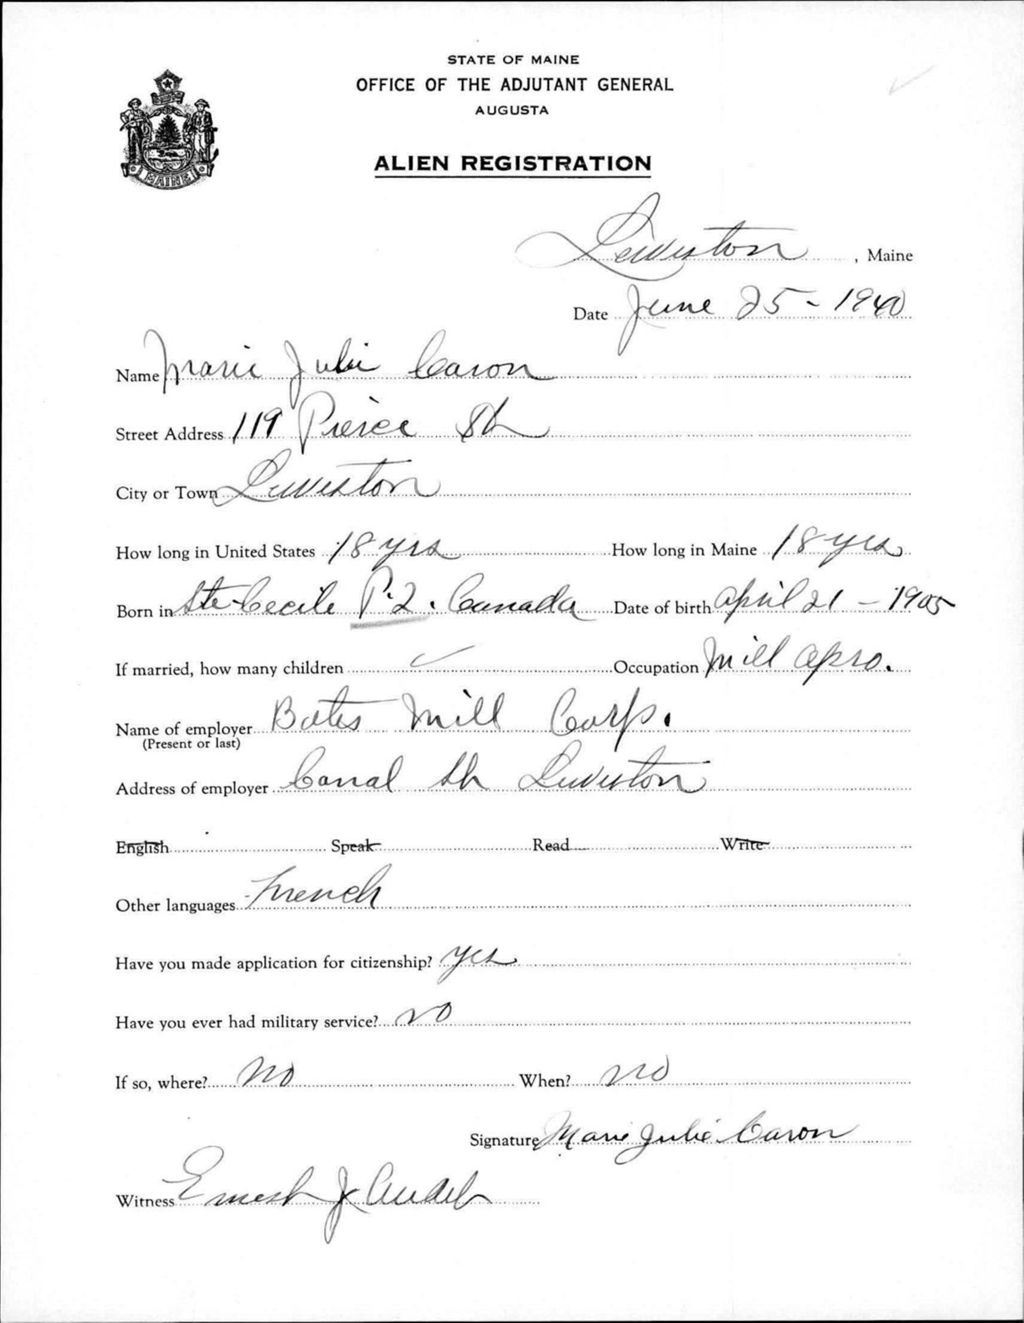 STATE OF MAINE
OFFICE OF THE ADJUTANT GENERAL
AUGUSTA
ALIEN REGISTRATION
MAINE
Lewiston, Maine
Date June 25 - 1940
Name Marie Julie Caron
Street Address 119 Pierce St
City or Town Lewiston
How long in United States 18 yrs How long in Maine 18 yrs
Born in Ste Cecile P.Q. Canada Date of birth April 21 - 1905
If married, how many children Occupation Mill Opro.
Name of employer Bates Mill Corp.
(Present or last)
Address of employer Canal St Lewiston
English Speak Read Write
Other languages French
Have you made application for citizenship? Yes
Have you ever had military service? no
If so, where? No When? no
Signature Marie Julie Caron
Witness Ernest J